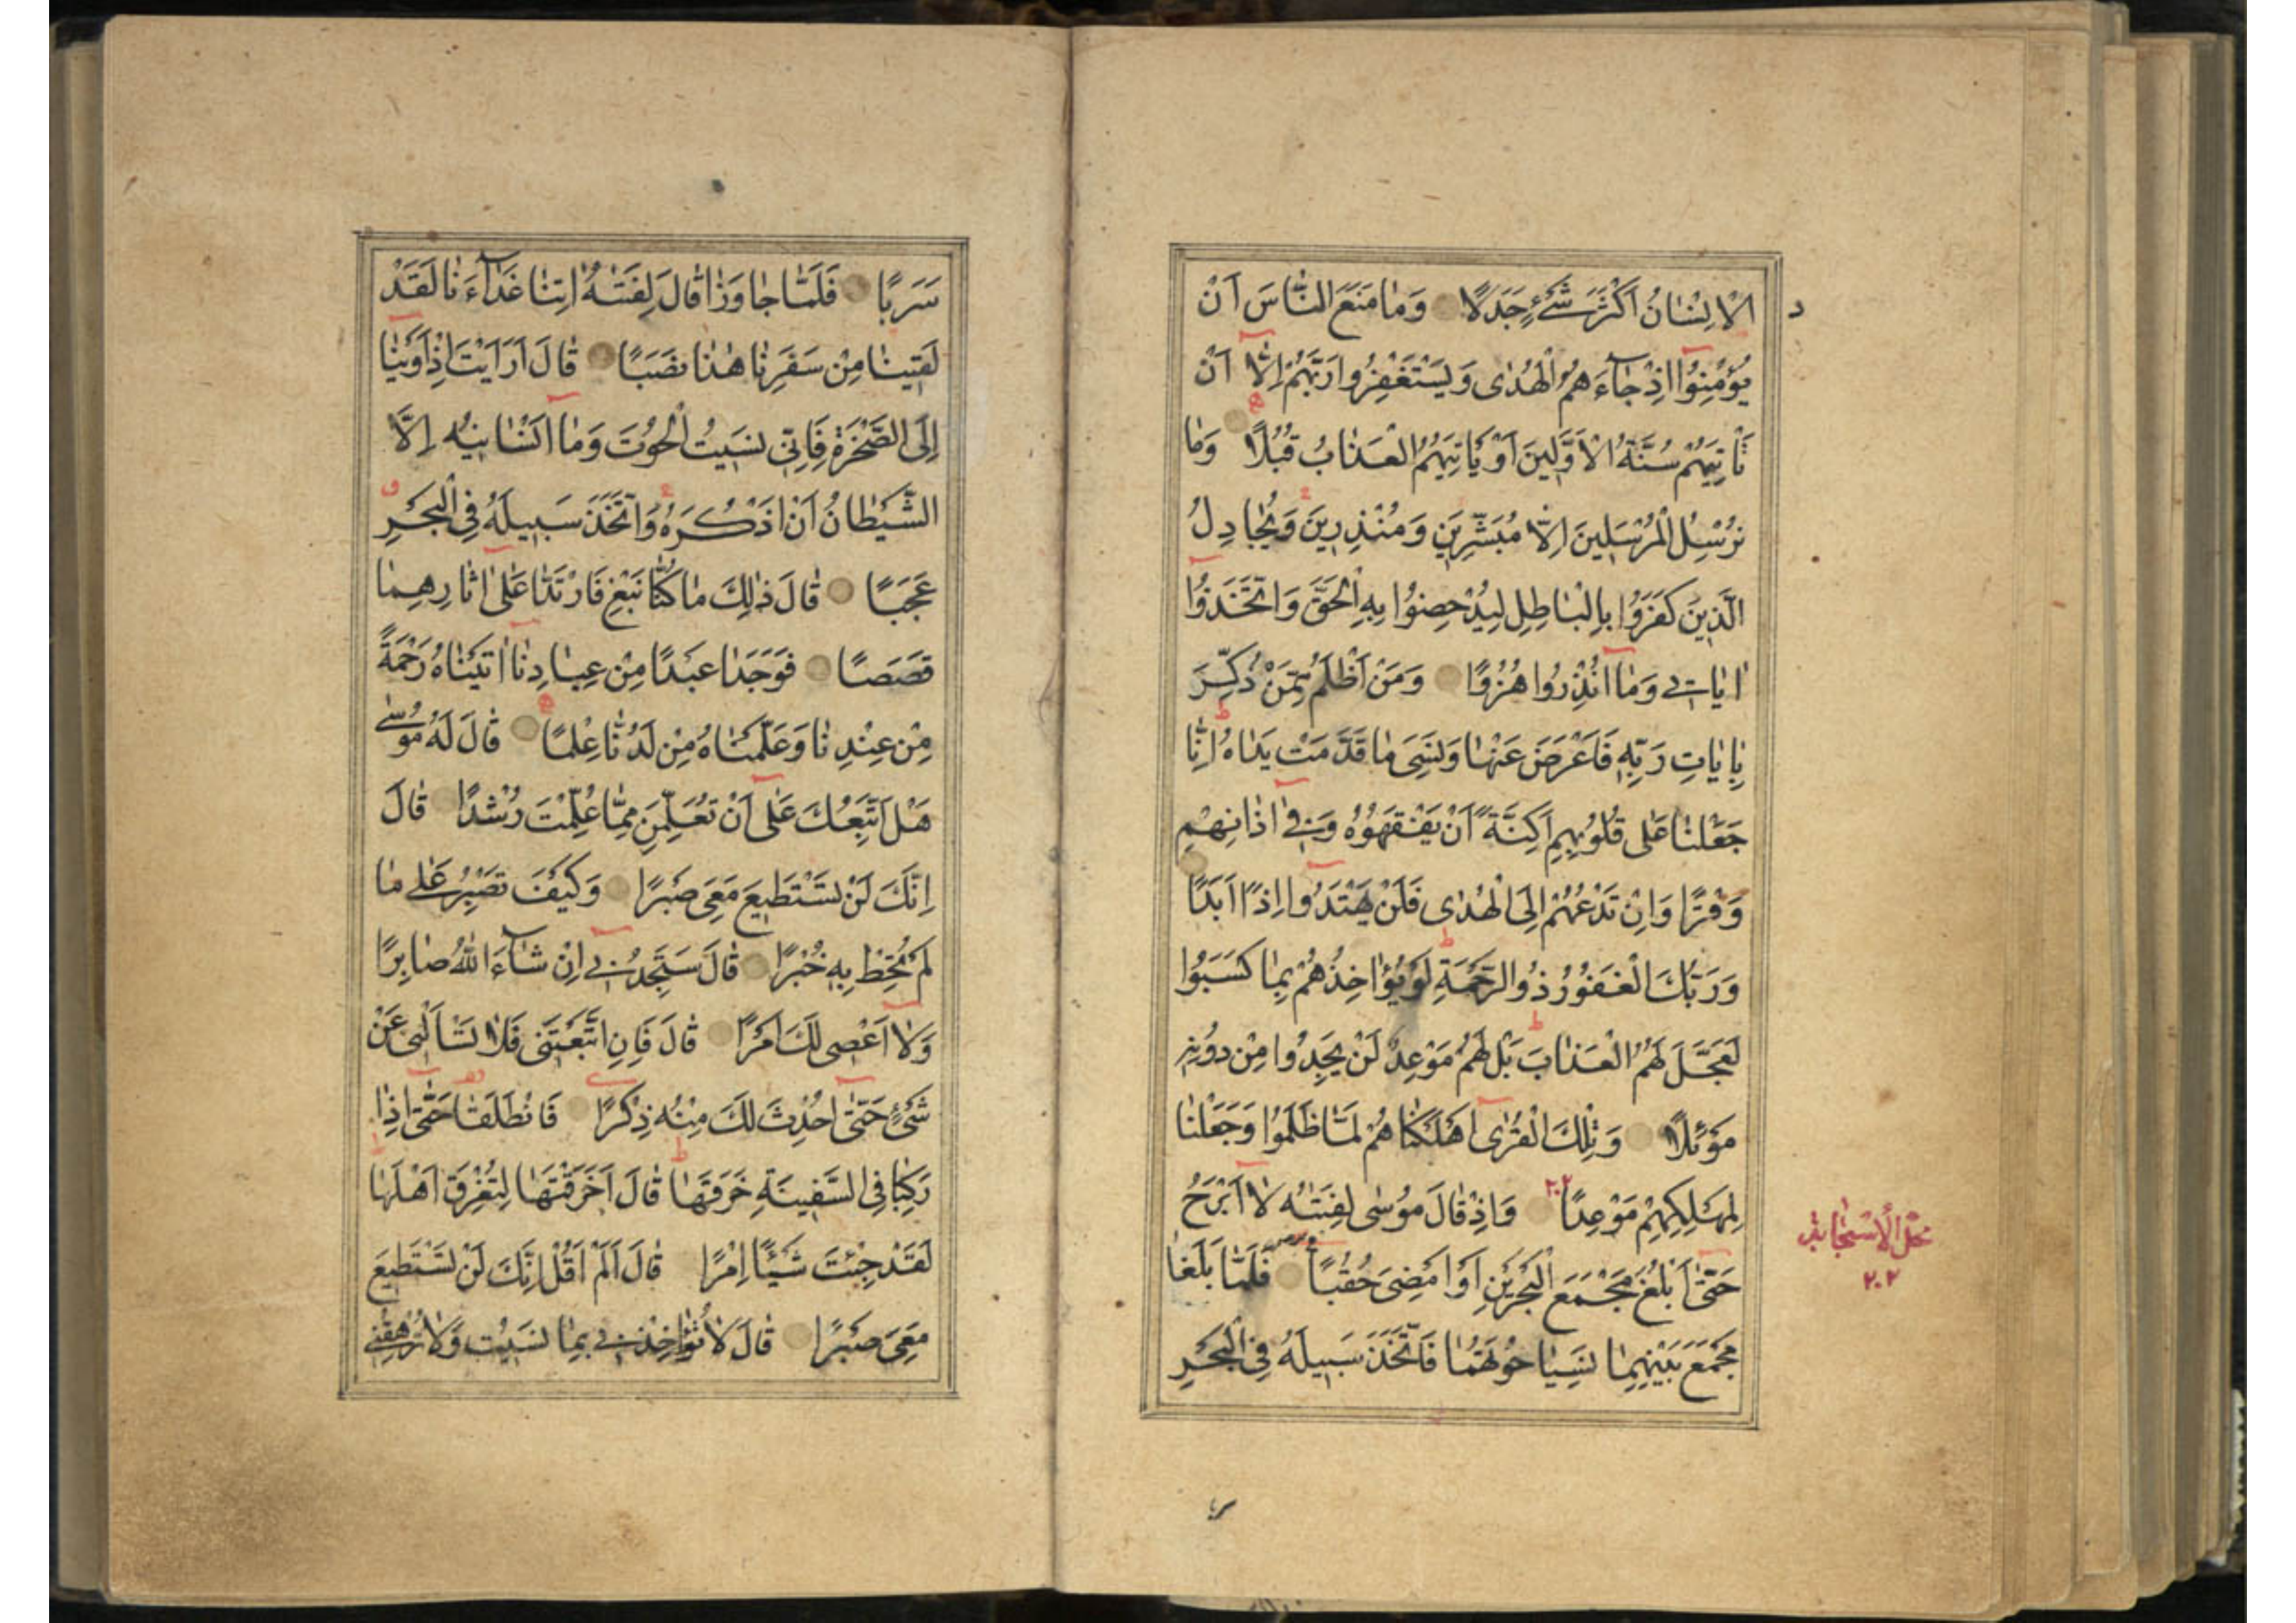 الْاِنْسَانُ اَكْثَرَ شَیْءٍ جَدَلًا وَمَا مَنَعَ النَّاسَ اَنْ
يُؤْمِنُوا اِذْ جَاءَهُمُ الْهُدٰى وَيَسْتَغْفِرُوا رَبَّهُمْ اِلَّا اَنْ
تَاْتِيَهُمْ سُنَّةُ الْاَوَّلِينَ اَوْ يَاْتِيَهُمُ الْعَذَابُ قُبُلًا وَمَا
نُرْسِلُ الْمُرْسَلِينَ اِلَّا مُبَشِّرِينَ وَمُنْذِرِينَ وَيُجَادِلُ
الَّذِينَ كَفَرُوا بِالْبَاطِلِ لِيُدْحِضُوا بِهِ الْحَقَّ وَاتَّخَذُوا
اٰيَاتِی وَمَا اُنْذِرُوا هُزُوًا وَمَنْ اَظْلَمُ مِمَّنْ ذُكِّرَ
بِاٰيَاتِ رَبِّهِ فَاَعْرَضَ عَنْهَا وَنَسِیَ مَا قَدَّمَتْ يَدَاهُ اِنَّا
جَعَلْنَا عَلٰى قُلُوبِهِمْ اَكِنَّةً اَنْ يَفْقَهُوهُ وَفِی اٰذَانِهِمْ
وَقْرًا وَاِنْ تَدْعُهُمْ اِلَى الْهُدٰى فَلَنْ يَهْتَدُوا اِذًا اَبَدًا
وَرَبُّكَ الْغَفُورُ ذُو الرَّحْمَةِ لَوْ يُؤَاخِذُهُمْ بِمَا كَسَبُوا
لَعَجَّلَ لَهُمُ الْعَذَابَ بَلْ لَهُمْ مَوْعِدٌ لَنْ يَجِدُوا مِنْ دُونِهِ
مَوْئِلًا وَتِلْكَ الْقُرٰى اَهْلَكْنَاهُمْ لَمَّا ظَلَمُوا وَجَعَلْنَا
لِمَهْلِكِهِمْ مَوْعِدًا ٢٠٢ وَاِذْ قَالَ مُوسٰى لِفَتٰيهُ لَا اَبْرَحُ
حَتّٰى اَبْلُغَ مَجْمَعَ الْبَحْرَيْنِ اَوْ اَمْضِیَ حُقُبًا فَلَمَّا بَلَغَا
مَجْمَعَ بَيْنِهِمَا نَسِيَا حُوتَهُمَا فَاتَّخَذَ سَبِيلَهُ فِی الْبَحْرِ
محل الاستجابة
٢٠٢
سَرَبًا فَلَمَّا جَاوَزَا قَالَ لِفَتٰيهُ اٰتِنَا غَدَاءَنَا لَقَدْ
لَقِينَا مِنْ سَفَرِنَا هٰذَا نَصَبًا قَالَ اَرَاَيْتَ اِذْ اَوَيْنَا
اِلَى الصَّخْرَةِ فَاِنِّی نَسِيتُ الْحُوتَ وَمَا اَنْسَانِيهُ اِلَّا
الشَّيْطَانُ اَنْ اَذْكُرَهُ وَاتَّخَذَ سَبِيلَهُ فِی الْبَحْرِ
عَجَبًا قَالَ ذٰلِكَ مَا كُنَّا نَبْغِ فَارْتَدَّا عَلٰى اٰثَارِهِمَا
قَصَصًا فَوَجَدَا عَبْدًا مِنْ عِبَادِنَا اٰتَيْنَاهُ رَحْمَةً
مِنْ عِنْدِنَا وَعَلَّمْنَاهُ مِنْ لَدُنَّا عِلْمًا قَالَ لَهُ مُوسٰى
هَلْ اَتَّبِعُكَ عَلٰى اَنْ تُعَلِّمَنِ مِمَّا عُلِّمْتَ رُشْدًا قَالَ
اِنَّكَ لَنْ تَسْتَطِيعَ مَعِیَ صَبْرًا وَكَيْفَ تَصْبِرُ عَلٰى مَا
لَمْ تُحِطْ بِهِ خُبْرًا قَالَ سَتَجِدُنِی اِنْ شَاءَ اللّٰهُ صَابِرًا
وَلَا اَعْصِی لَكَ اَمْرًا قَالَ فَاِنِ اتَّبَعْتَنِی فَلَا تَسْاَلْنِی عَنْ
شَیْءٍ حَتّٰى اُحْدِثَ لَكَ مِنْهُ ذِكْرًا فَانْطَلَقَا حَتّٰى اِذَا
رَكِبَا فِی السَّفِينَةِ خَرَقَهَا قَالَ اَخَرَقْتَهَا لِتُغْرِقَ اَهْلَهَا
لَقَدْ جِئْتَ شَيْئًا اِمْرًا قَالَ اَلَمْ اَقُلْ اِنَّكَ لَنْ تَسْتَطِيعَ
مَعِیَ صَبْرًا قَالَ لَا تُؤَاخِذْنِی بِمَا نَسِيتُ وَلَا تُرْهِقْنِی